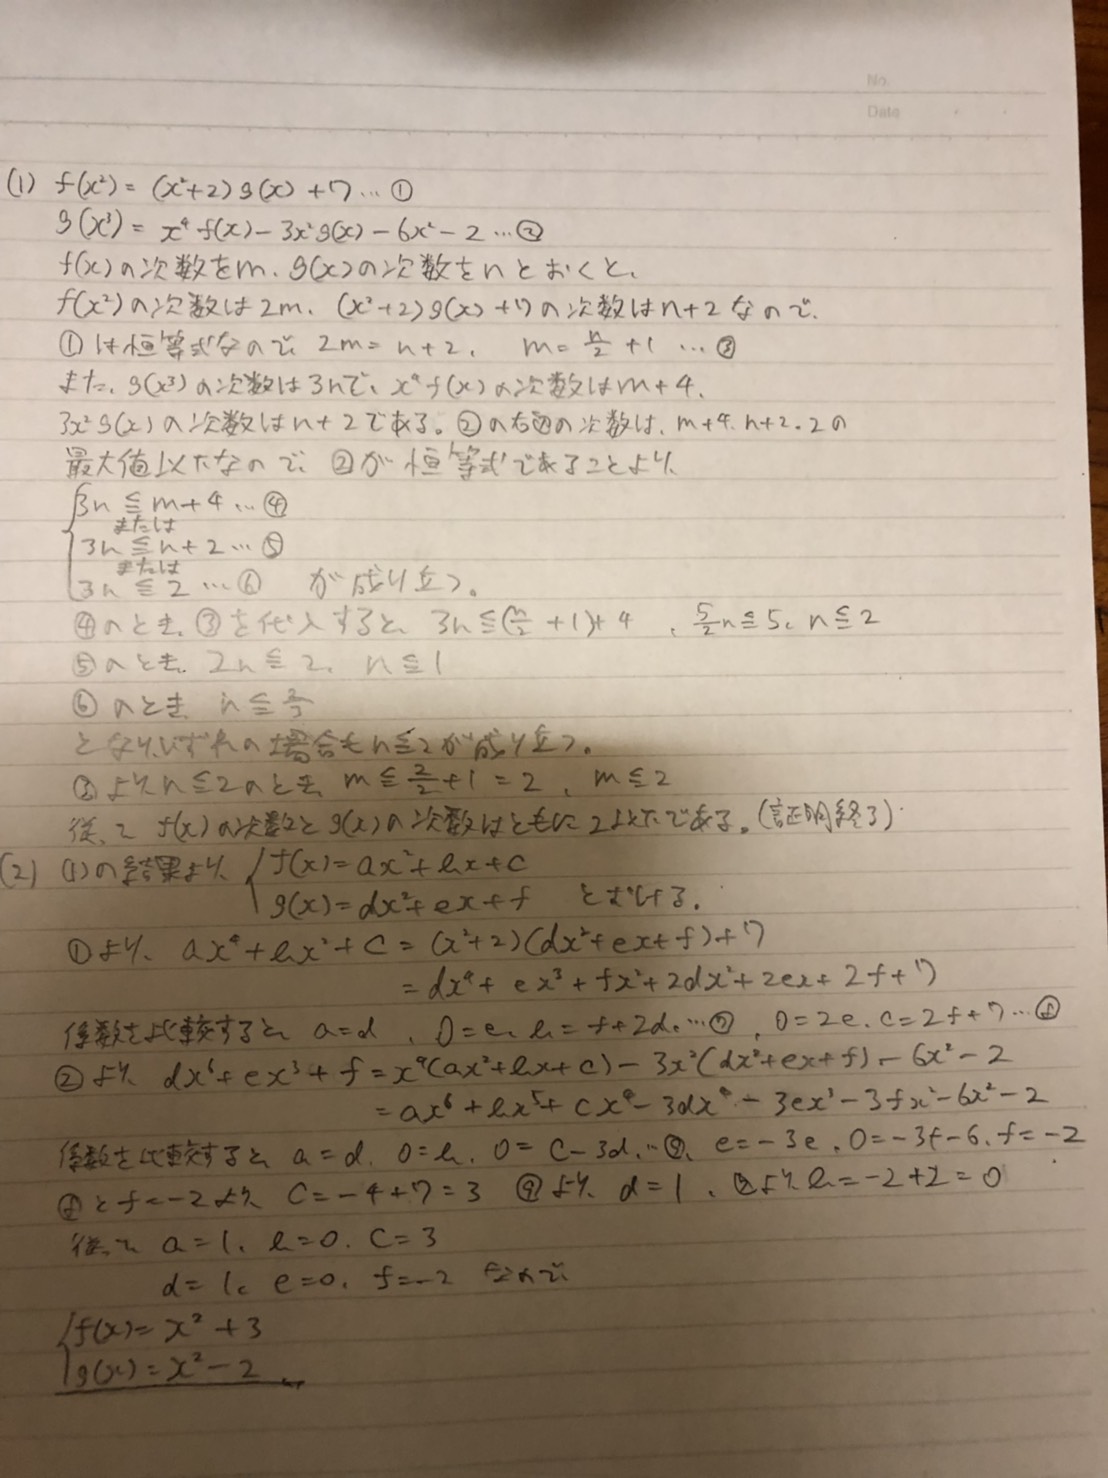 No.
Date
(1) f(x²) = (x²+2)g(x)+7 … ①
g(x³) = x⁴f(x) - 3x²g(x) - 6x² - 2 … ②
f(x)の次数をm、g(x)の次数をnとおくと、
f(x²)の次数は2m、(x²+2)g(x)+7の次数はn+2なので、
①は恒等式なので、2m=n+2、 m=n/2+1 … ③
また、g(x³)の次数は3nで、x⁴f(x)の次数はm+4、
3x²g(x)の次数はn+2である。②の右辺の次数は、m+4、n+2、2の
最大値以下なので、②が恒等式であることより、
3n≦m+4 … ④
または
3n≦n+2 … ⑤
または
3n≦2 … ⑥ が成り立つ。
④のとき、③を代入すると、3n≦(n/2+1)+4 、5/2n≦5、n≦2
⑤のとき、2n≦2、n≦1
⑥のとき、n≦2/3
となり、いずれの場合もn≦2が成り立つ。
③よりn≦2のとき、m≦2/2+1=2、m≦2
従って f(x)の次数とg(x)の次数はともに2以下である。(証明終了)
(2) (1)の結果より、 f(x)=ax²+bx+c
g(x)=dx²+ex+f とおける。
①より、ax⁴+bx²+c=(x²+2)(dx²+ex+f)+7
=dx⁴+ex³+fx²+2dx²+2ex+2f+7
係数を比較すると、a=d、0=e、b=f+2d、…⑦、0=2e、c=2f+7…⑧
②より、dx⁶+ex³+f=x⁴(ax²+bx+c)-3x²(dx²+ex+f)-6x²-2
=ax⁶+bx⁵+cx⁴-3dx⁴-3ex³-3fx²-6x²-2
係数を比較すると、a=d、0=b、0=c-3d、…⑨、e=-3e、0=-3f-6、f=-2
⑧とf=-2より、c=-4+7=3 ⑨より、d=1、⑦より、b=-2+2=0
従って a=1、b=0、c=3
d=1、e=0、f=-2 なので、
f(x)=x²+3
g(x)=x²-2